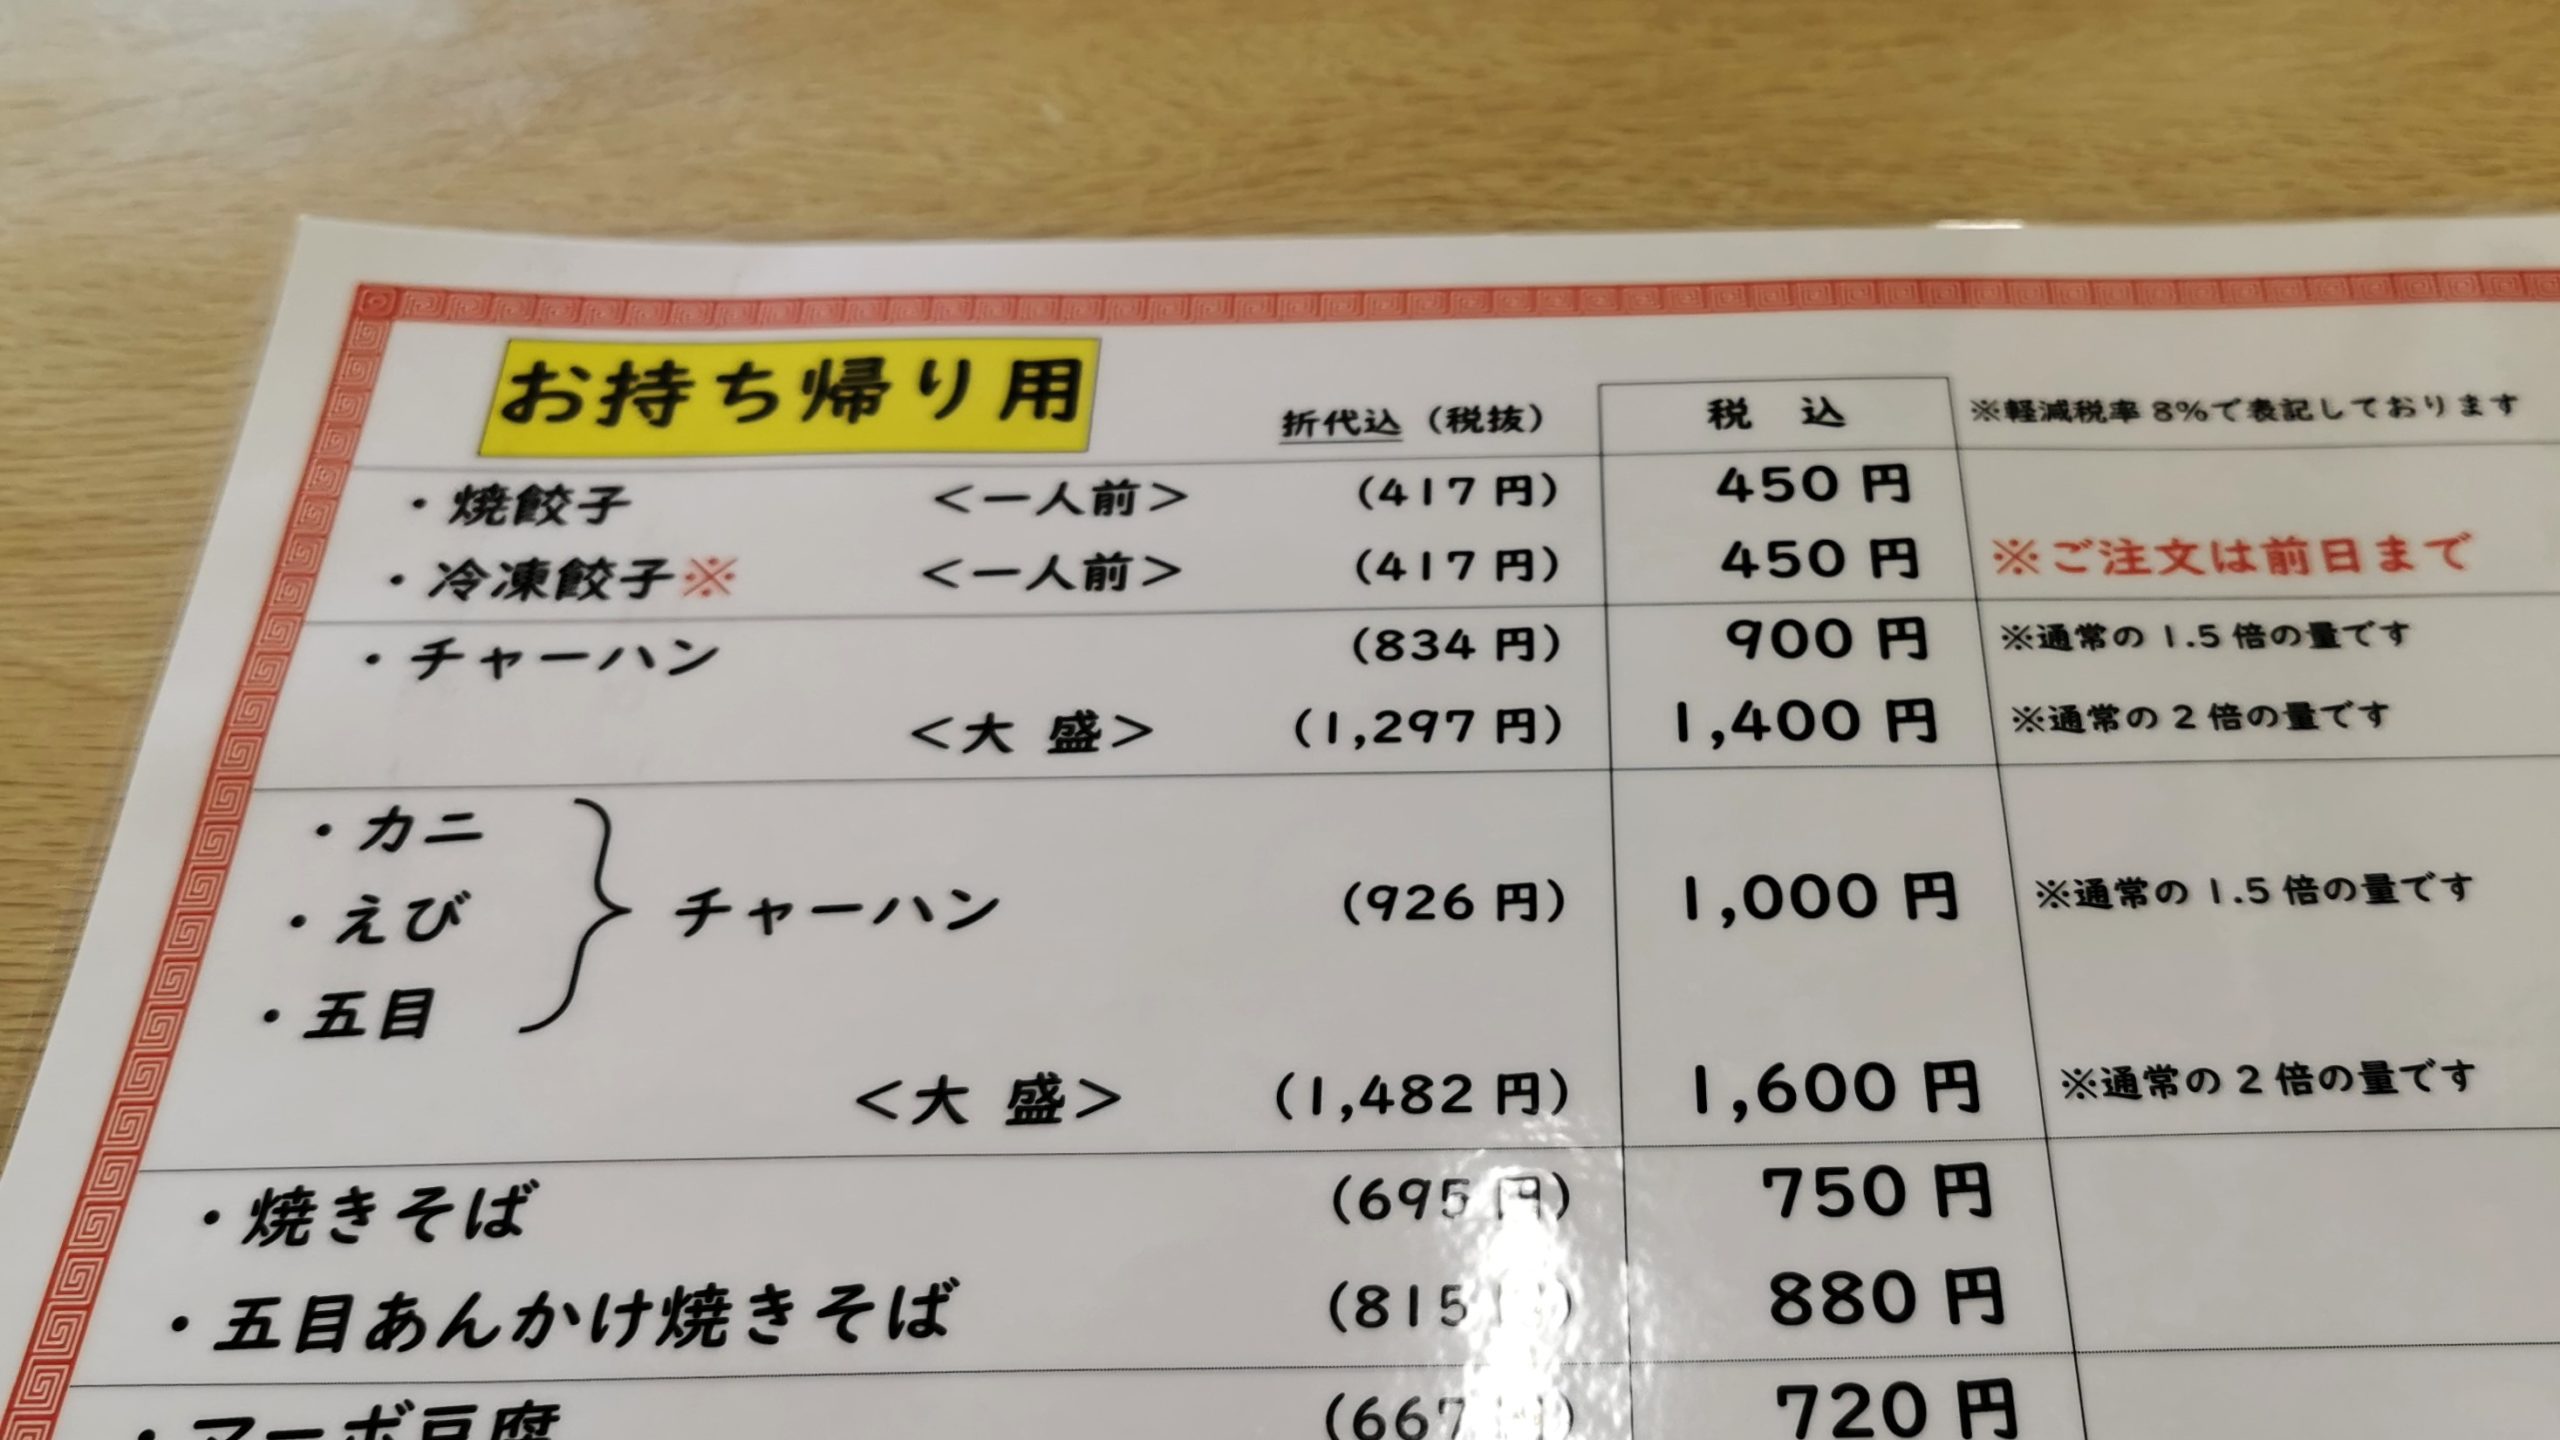 お持ち帰り用 折代込（税抜） 税 込 ※軽減税率8%で表記しております
・焼餃子 ＜一人前＞ （417円） 450円
・冷凍餃子※ ＜一人前＞ （417円） 450円 ※ご注文は前日まで
・チャーハン （834円） 900円 ※通常の1.5倍の量です
＜大 盛＞ （1,297円） 1,400円 ※通常の2倍の量です
・カニ
・えび チャーハン （926円） 1,000円 ※通常の1.5倍の量です
・五目
＜大 盛＞ （1,482円） 1,600円 ※通常の2倍の量です
・焼きそば （695円） 750円
・五目あんかけ焼きそば （815 ） 880円
・マーボ豆腐 （667 ） 720円